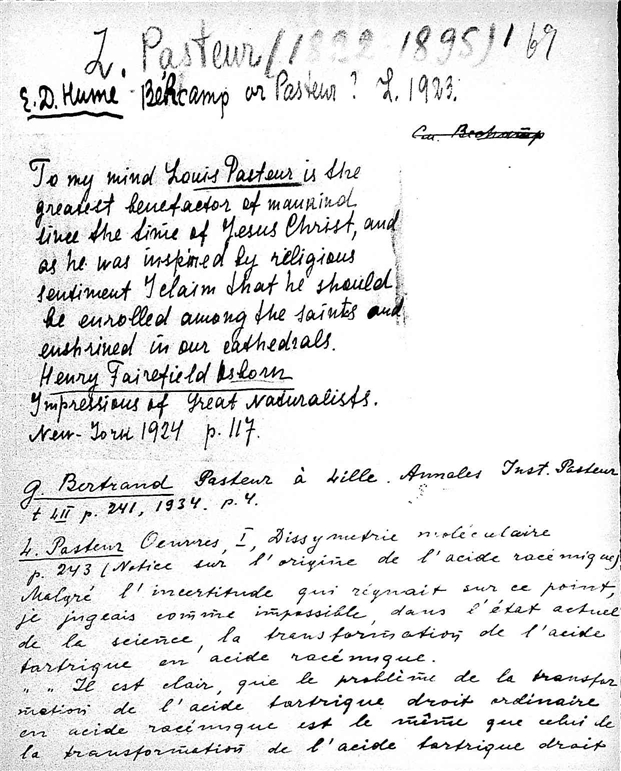 L. Pasteur (1822-1895) 1 69
E.D. Hume Béhcamp or Pasteur? L. 1923.
To my mind Louis Pasteur is the
greatest benefactor of mankind
since the time of Jesus Christ, and
as he was inspired by religious
sentiment I claim that he should
be enrolled among the saints and
enshrined in our cathedrals.
Henry Fairefield Osborn
Impressions of Great Naturalists.
New-York 1924 p. 117.
G. Bertrand Pasteur à Lille. Annales Inst. Pasteur
t LII p. 241, 1934. p. 4.
L. Pasteur Oeuvres, I, Dissymetrie moléculaire
p. 243 (Notice sur l'origine de l'acide racémique)
Malgré l'incertitude qui régnait sur ce point,
je jugeais comme impossible, dans l'état actuel
de la science, la transformation de l'acide
tartrique en acide racémique.
" " Il est clair, que le problème de la transfor
mation de l'acide tartrique droit ordinaire
en acide racémique est le même que celui de
la transformation de l'acide tartrique droit